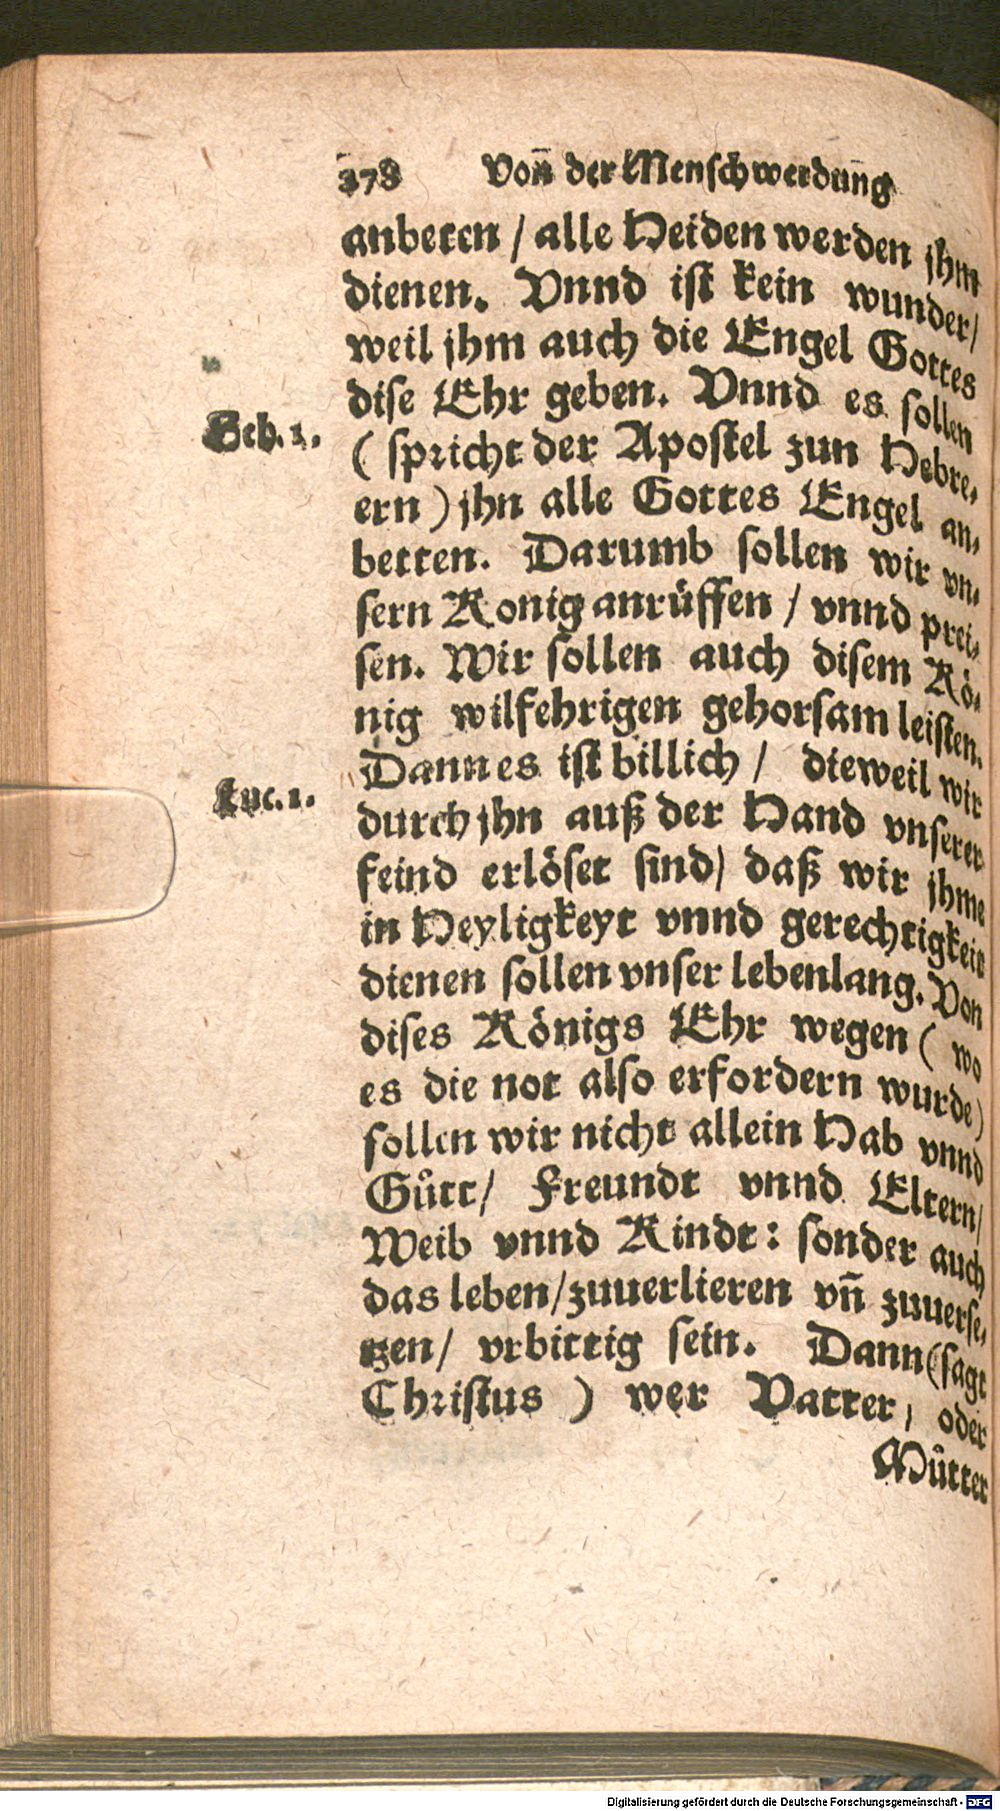 378 Von̄ der Menschwerdun̄g
anbeten / alle Heiden werden jhm
dienen. Vnnd ist kein wunder/
weil jhm auch die Engel Gottes
dise Ehr geben. Vnnd es sollen
Heb. 1.
( spricht der Apostel zun Hebre-
ern ) jhn alle Gottes Engel an-
betten. Darumb sollen wir vn-
sern Konig anrüffen / vnnd prei-
sen. Wir sollen auch disem Kö-
nig wilfehrigen gehorsam leisten.
Dann es ist billich / dieweil wir
Luc. 1.
durch jhn auß der Hand vnserer
feind erlöset sind/ daß wir jhme
in Heyligkeyt vnnd gerechtigkeit
dienen sollen vnser lebenlang. Von
dises Königs Ehr wegen ( wo
es die not also erfordern wurde)
sollen wir nicht allein Hab vnnd
Gůtt/ Freundt vnnd Eltern/
Weib vnnd Kindt: sonder auch
das leben/zuuerlieren vn̄ zuuerse-
tzen/ vrbittig sein. Dann (sagt
Christus ) wer Vatter, oder
Můtter
Digitalisierung gefördert durch die Deutsche Forschungsgemeinschaft - DFG